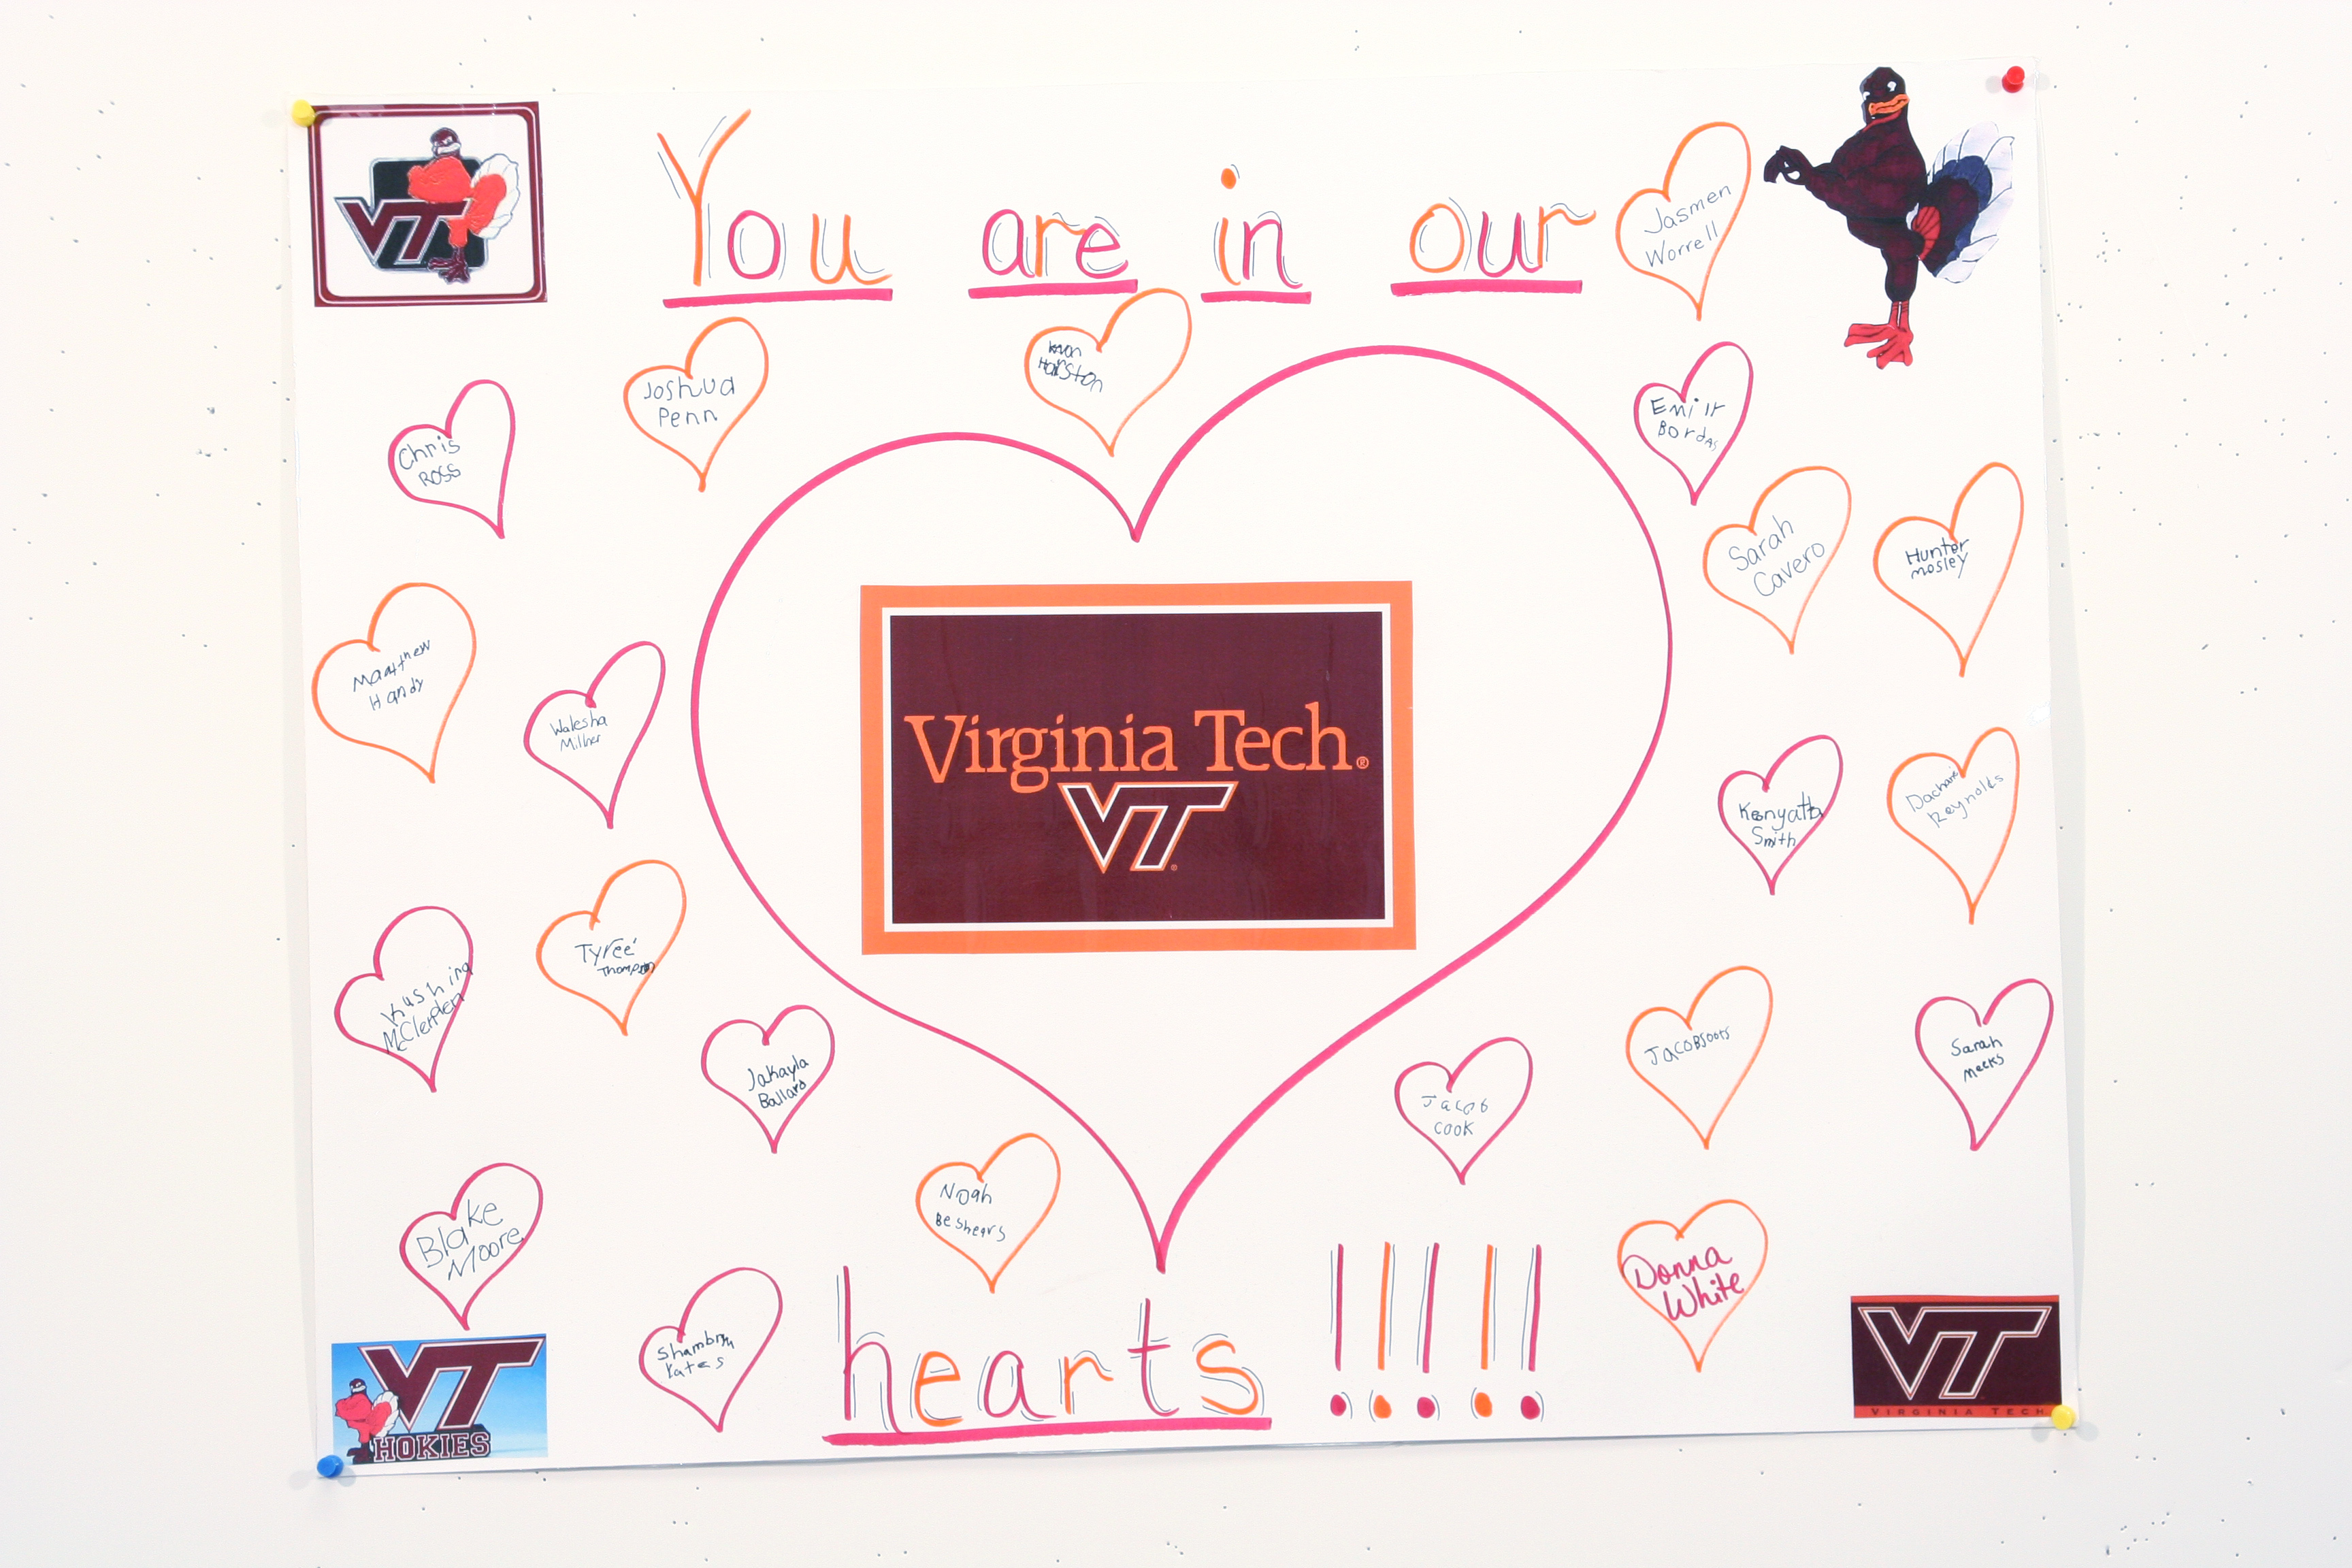 VT
You are in our
Jasmen
Worrell
Joshua
Penn
Hairston
Chris
Ross
Emily
Bordas
Sarah
Cavero
Hunter
Mosley
Maatthew
Handy
Walesha
Millner
Virginia Tech®
VT
Kenyatta
Smith
Reynolds
Tyree'
Thompson
McClenden
Jakayla
Ballard
Jacob
Cook
Jacob Soots
Sarah
Meeks
Noah
Beshears
Blake
Moore
Donna
White
Yates
hearts !!!!!
VT
HOKIES
VT
VIRGINIA TECH